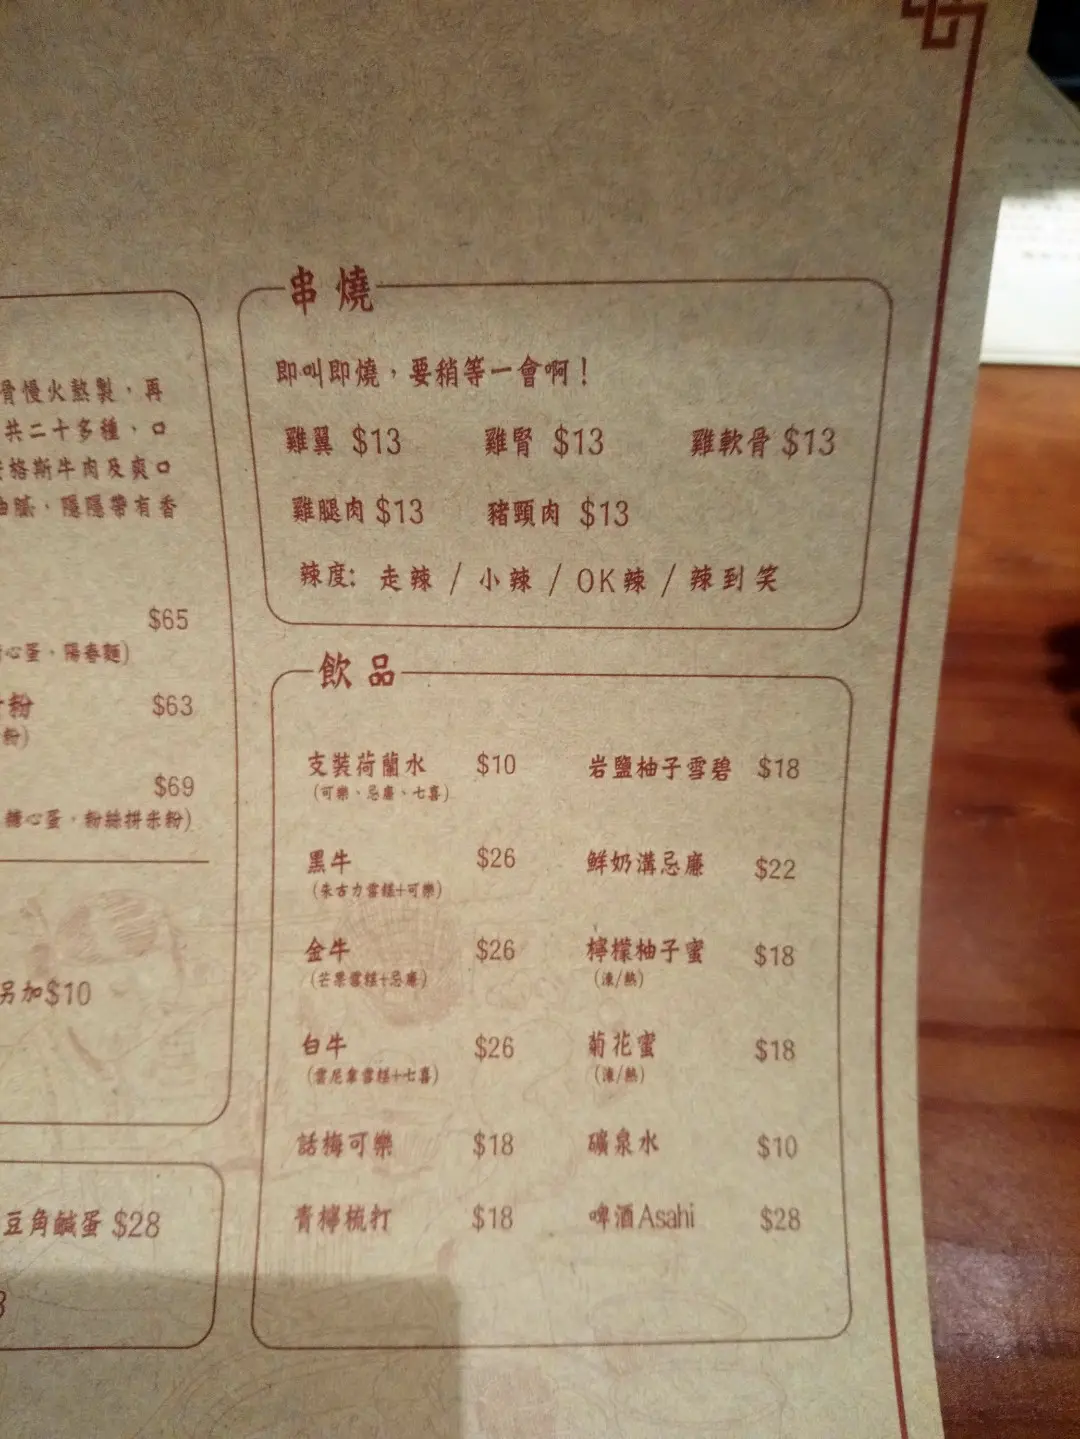 骨慢火熬製，再
共二十多種，口
格斯牛肉及爽口
油膩，隱隱帶有香
$65
心蛋，陽春麵)
粉 $63
粉)
$69
糖心蛋，粉絲拼米粉)
另加$10
豆角鹹蛋 $28
串燒
即叫即燒，要稍等一會啊！
雞翼 $13 雞腎 $13 雞軟骨 $13
雞腿肉 $13 豬頸肉 $13
辣度: 走辣 / 小辣 / OK辣 / 辣到笑
飲品
支裝荷蘭水 $10 岩鹽柚子雪碧 $18
(可樂、忌廉、七喜)
黑牛 $26 鮮奶溝忌廉 $22
(朱古力雪糕+可樂)
金牛 $26 檸檬柚子蜜 $18
(芒果雪糕+忌廉) (凍/熱)
白牛 $26 菊花蜜 $18
(雲尼拿雪糕+七喜) (凍/熱)
話梅可樂 $18 礦泉水 $10
青檸梳打 $18 啤酒Asahi $28